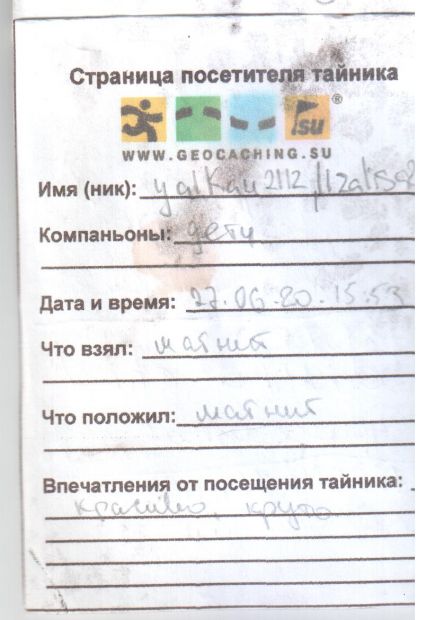 Страница посетителя тайника
.su ®
WWW.GEOCACHING.SU
Имя (ник):
Компаньоны: дети
Дата и время: 27.06.20. 15:53
Что взял: магнит
Что положил: магнит
Впечатления от посещения тайника:
красиво, круто